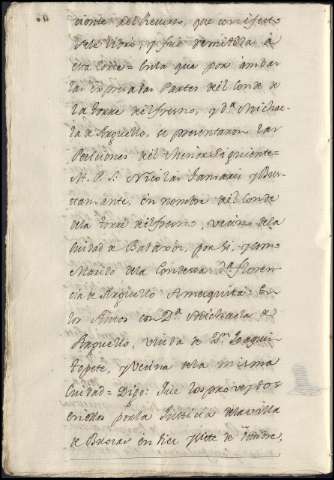 viente del Recurso, que con efecto
se le libró, y fué remitida à
esta Corte = En la que por ambas
las expresadas Partes del Conde de
la Torre del fresno, y D.ª Michae-
la de Arguello, se presentaron las
Peticiones del thenor siguiente =
M. P. S. Nicolas y Bus-
tamante, en nombre del Conde
de la Torre del fresno, vecino de la
Ciudad de Badajoz, por si, y como
Marido de la Condessa D.ª Floren-
cia de Arguello Amezquita En
los Autos con D.ª Michaela de
Arguello, viuda de D.n Joaquin
Topete, y vecina de la misma
Ciudad = Digo: Que los proveydos
en ellos por la Justicia de la villa
de Brozas en diez y siete de